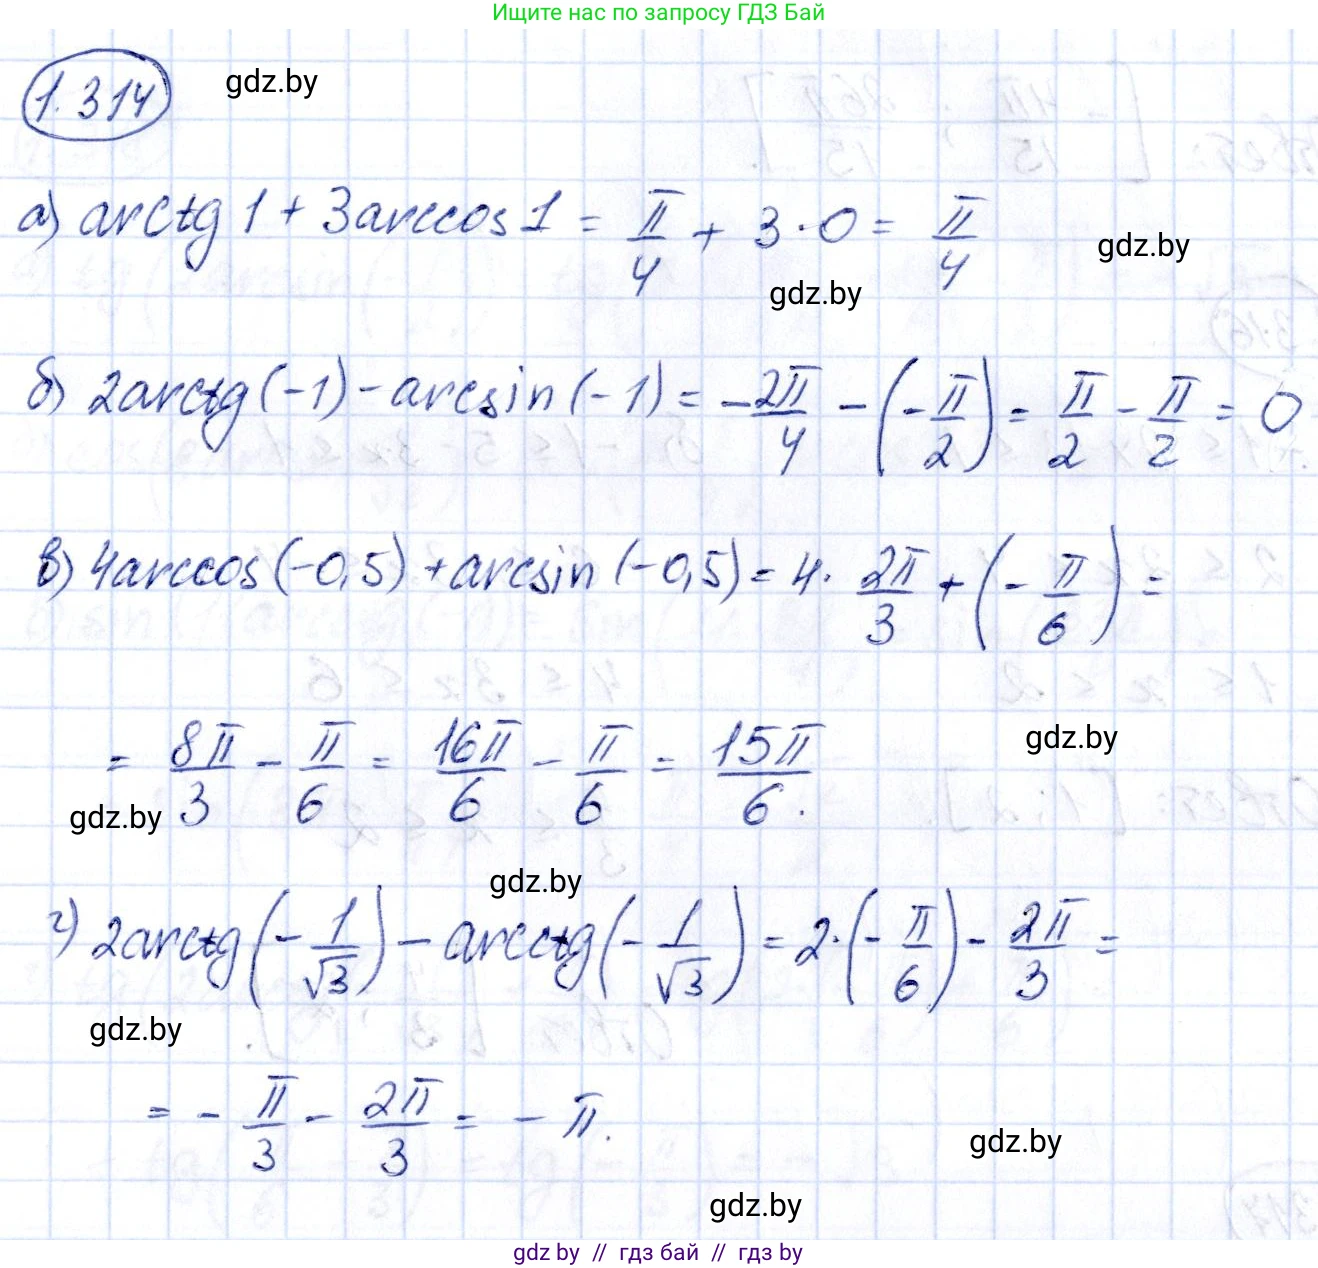 Ищите нас по запросу ГДЗ Бай
1.314 gdz.by
а) arctg 1 + 3arccos 1 = π/4 + 3·0 = π/4
gdz.by
gdz.by
б) 2arctg(-1) - arcsin(-1) = -2π/4 - (-π/2) = π/2 - π/2 = 0
в) 4arccos(-0,5) + arcsin(-0,5) = 4· 2π/3 + (-π/6) =
= 8π/3 - π/6 = 16π/6 - π/6 = 15π/6.
gdz.by
gdz.by
gdz.by
г) 2arctg(-1/√3) - arcctg(-1/√3) = 2·(-π/6) - 2π/3 =
gdz.by
= -π/3 - 2π/3 = -π.
gdz.by
gdz.by
gdz by // гдз бай // gdz by